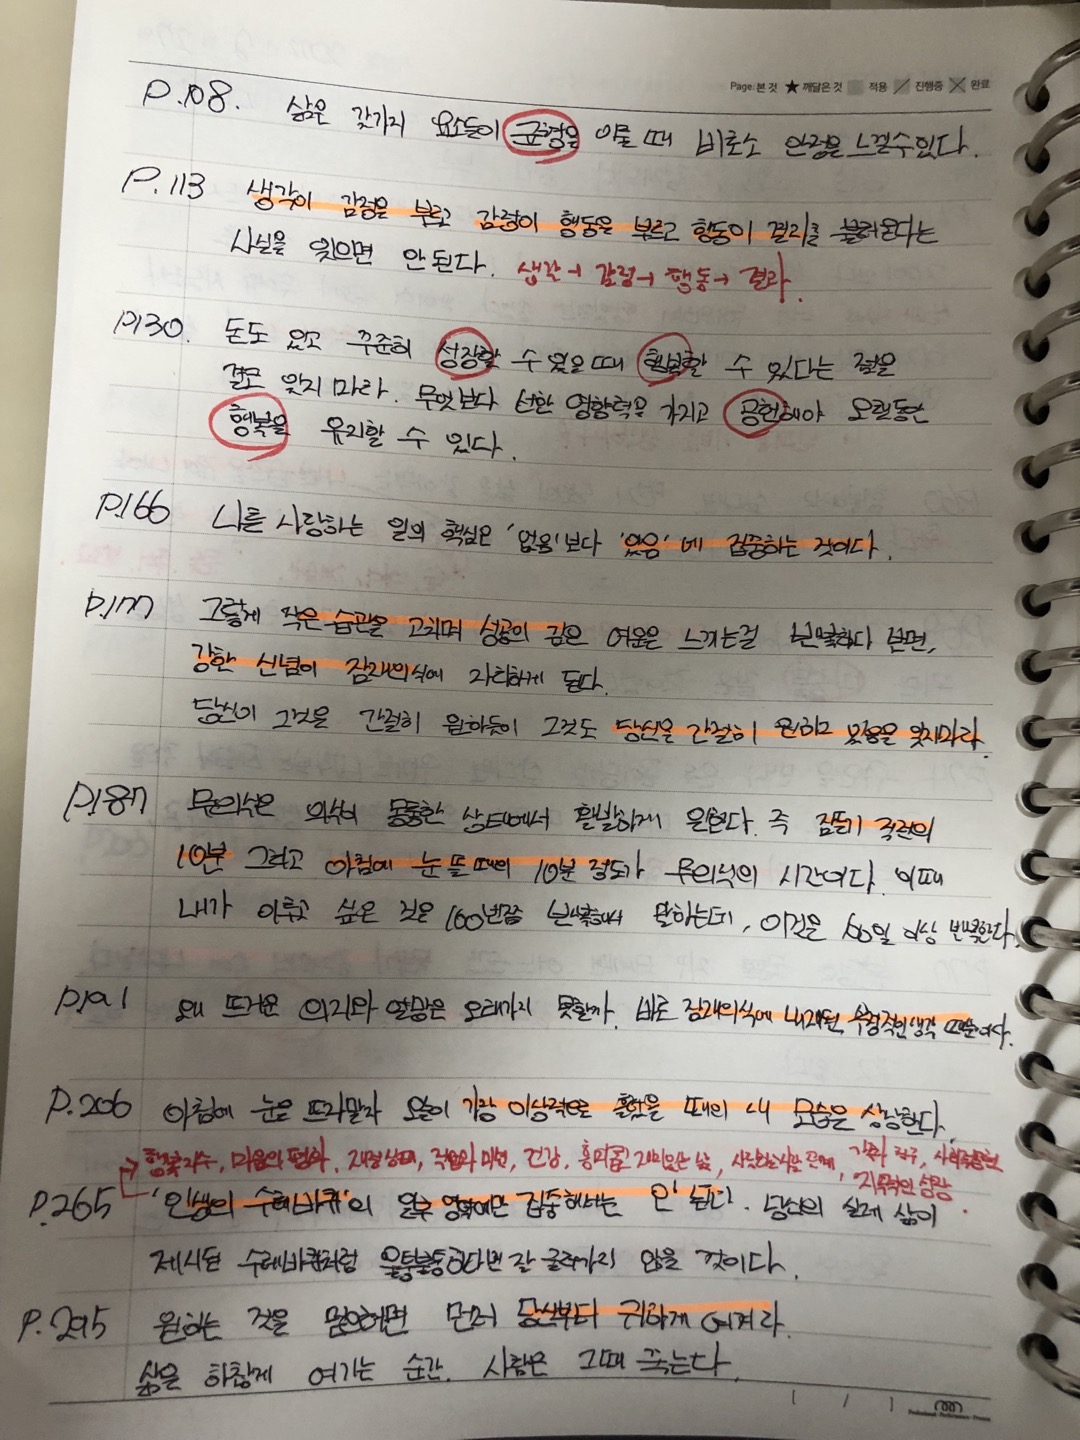 Page: 본 것 ★ 깨달은 것 적용 진행중 완료
P.108. 삶은 갖가지 요소들이 균형을 이룰 때 비로소 안정을 느낄수있다.
P.113 생각이 감정을 부르고 감정이 행동을 부르고 행동이 결과를 불러온다는
사실을 잊으면 안 된다. 생각→감정→행동→결과.
P.130. 돈도 있고 꾸준히 성장할 수 있을 때 행복할 수 있다는 점을
결코 잊지 마라. 무엇보다 선한 영향력을 가지고 공헌해야 오랫동안
행복을 유지할 수 있다.
P.166 나를 사랑하는 일의 핵심은 '없음'보다 '있음'에 집중하는 것이다.
P.177 그렇게 작은 습관을 고치며 성공의 깊은 여운을 느끼는걸 반복하다 보면,
강한 신념이 잠재의식에 자리하게 된다.
당신이 그것을 간절히 원하듯이 그것도 당신을 간절히 원하고 있음을 잊지마라.
P.187 무의식은 의식이 몽롱한 상태에서 활발하게 일한다. 즉 잠들기 직전의
10분 그리고 아침에 눈 뜰 때의 10분 정도가 무의식의 시간이다. 이때
내가 이루고 싶은 것을 100번쯤 반복해서 말하는데, 이것을 100일 이상 반복한다.
P.191 왜 뜨거운 의지와 열망은 오래가지 못할까. 바로 잠재의식에 내재된 부정적인생각 때문이다.
P.206 아침에 눈을 뜨자말자 오늘이 가장 이상적으로 흘렀을 때의 내 모습을 상상한다.
→ 행복지수, 마음의 평화, 재정상태, 직업과 미션, 건강, 흥미롭고 재미있는 삶, 사랑하는사람 관계, 가족과 친구, 사회공헌,
지속적인 성장.
P.265 '인생의 수레바퀴'의 일부 영역에만 집중해서는 안 된다. 당신의 실제 삶이
제시된 수레바퀴처럼 울퉁불퉁하다면 잘 굴러가지 않을 것이다.
P.295 원하는 것을 말하려면 먼저 당신부터 귀하게 여겨라.
삶을 하찮게 여기는 순간. 사람은 그때 죽는다.
/ /